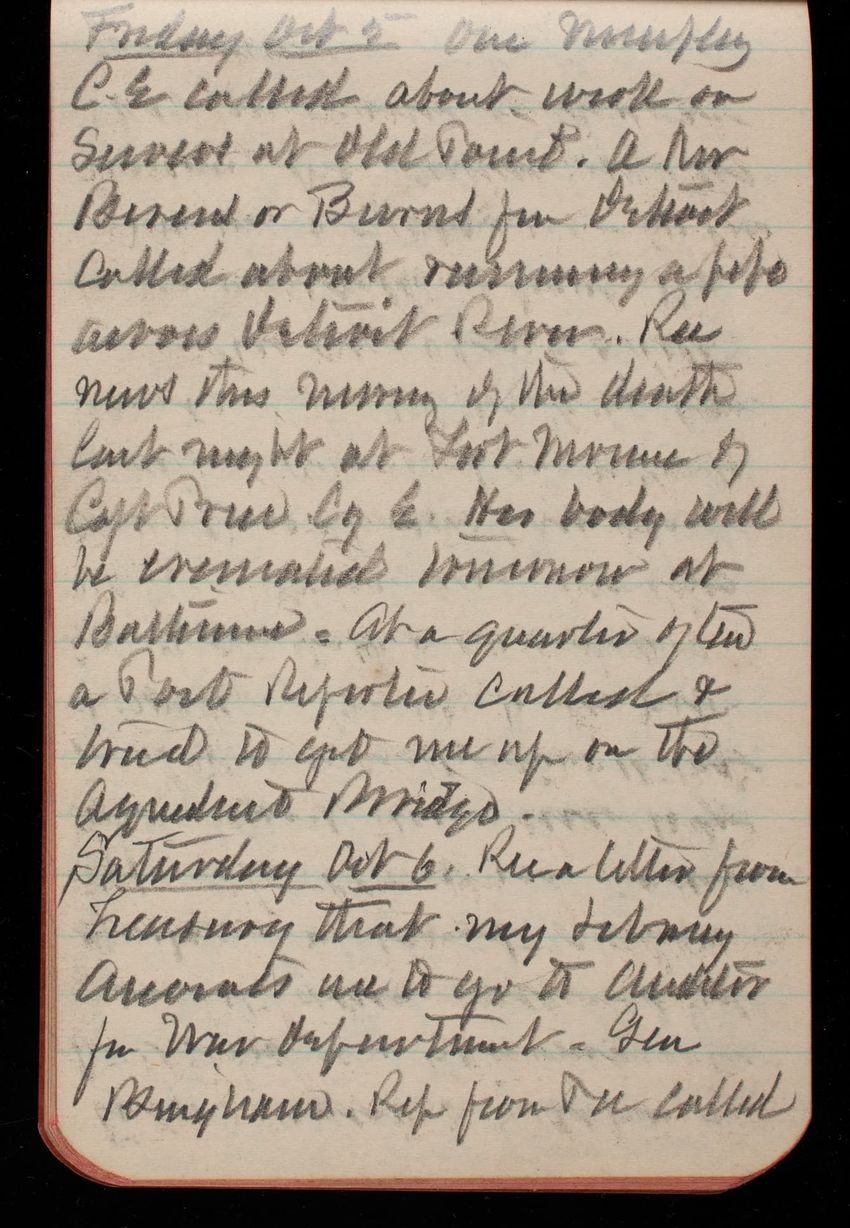 Friday Oct 5 One
C.E. called about work on
Sewers at Old Point. A Mr
or Burns from Detroit
called about running a pipe
across Detroit River. Rec
news this morning of the death
last night at Fort Monroe of
Capt Price C of E. His body will
be cremated tomorrow at
Baltimore - At a quarter of ten
a Post Reporter called &
tried to get me up on the
Aqueduct Bridge.
Saturday Oct 6. Rec a letter from
Treasury that my Library
Accounts are to go to Auditor
for War Department - Gen
Bingham. Rep from called